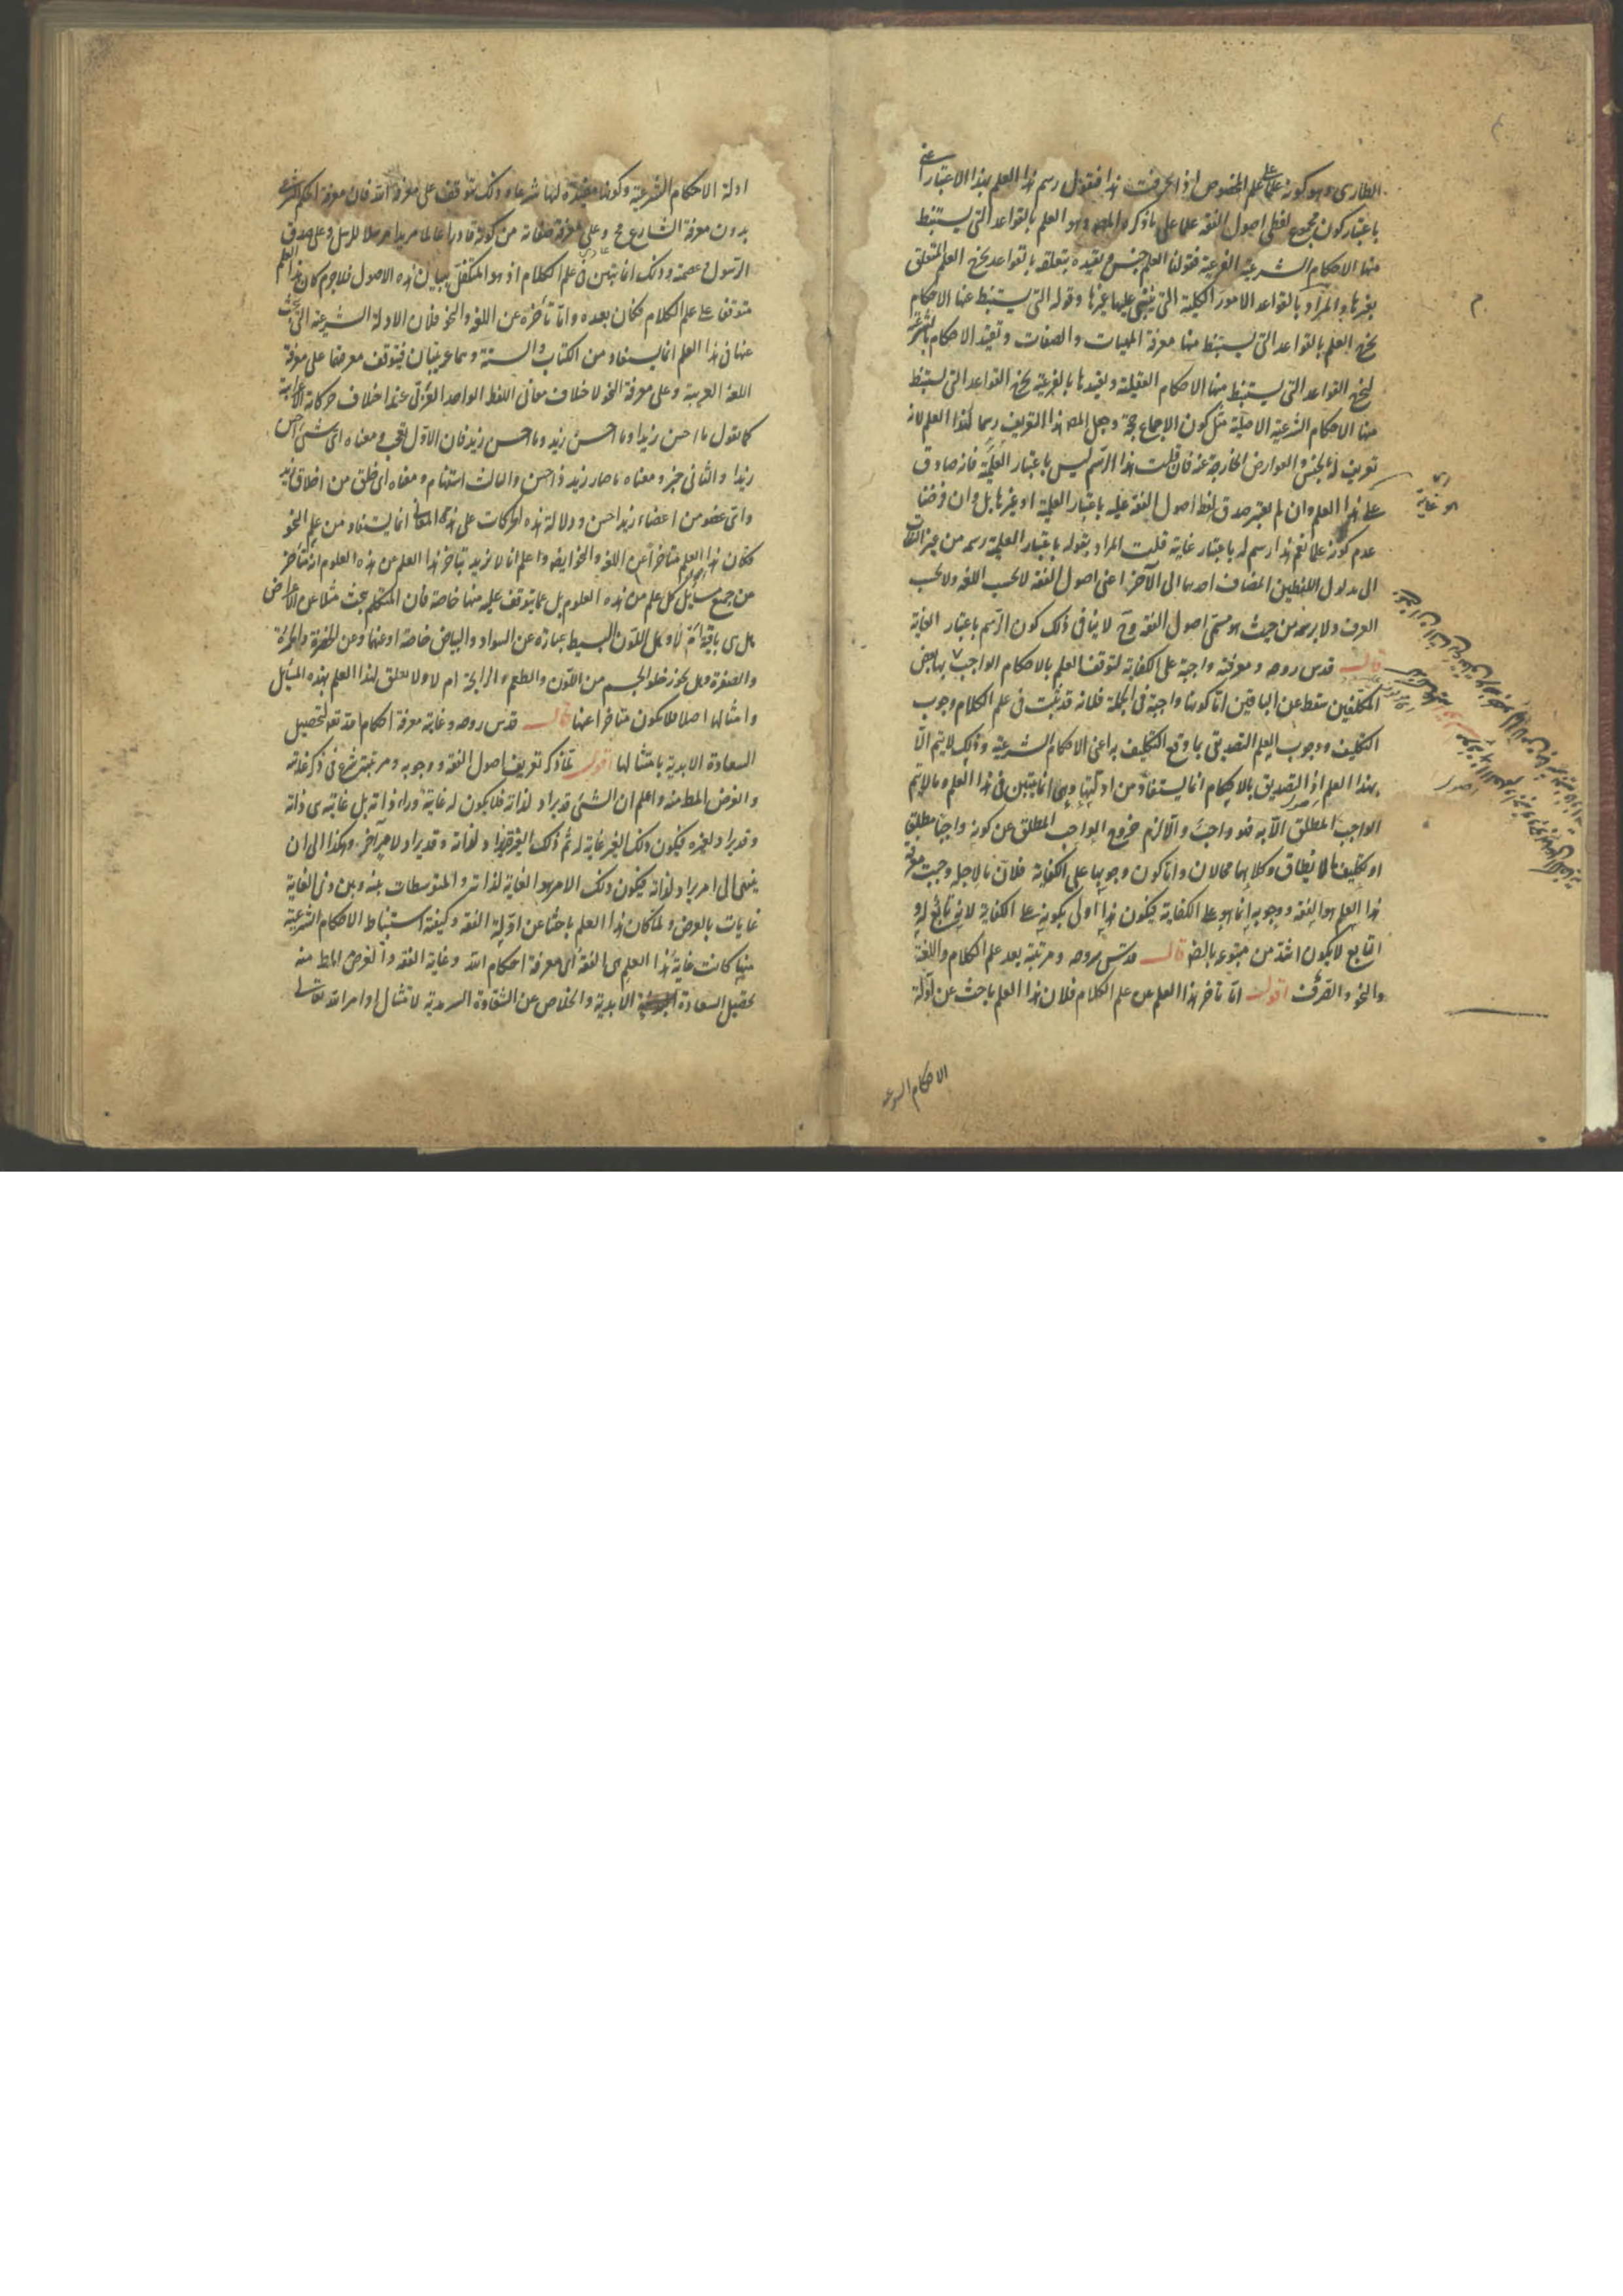 الطارى وهو كونه علما على العلم المخصوص اذا عرفت هذا فنقول رسم هذا العلم بهذا الاعتبار اعنى
باعتبار كون مجموع لفظى اصول الفقه علما على ما ذكره المصـ وهو العلم بالقواعد التى يستنبط
منها الاحكام الشرعية الفرعية فقولنا العلم جنس وتقييده بتعلقه بالقواعد يخرج العلم المتعلق
بغيرها والمراد بالقواعد الامور الكلية التى يبتنى عليها غيرها وقوله التى يستنبط عنها الاحكام
يخرج العلم بالقواعد التى يستنبط منها معرفة الماهيات والصفات وتقييد الاحكام بالشرعية
ليخرج القواعد التى يستنبط منها الاحكام العقلية وتقييدها بالفرعية يخرج القواعد التى يستنبط
منها الاحكام الشرعية الاصلية مثل كون الاجماع حجة وجعل المصـ هذا التعريف رسما لهذا العلم لانه
تعريف له بالجنس والعوارض الخارجة عنه فان قلت هذا الرسم ليس باعتبار العلمية فانه صادق
على هذا العلم وان لم يعتبر صدق لفظ اصول الفقه عليه باعتبار العلمية او غيرها بل وان فرضنا
عدم كونه علما نعم هذا رسم له باعتبار غايته قلت المراد بقوله باعتبار العلمية رسمه من غير التفات
الى مدلول اللفظين المضاف احدهما الى الآخر اعنى اصول الفقه لا بحسب اللغة ولا بحسب
العرف ولا يرسمه من حيث هو مسمى اصول الفقه وح لا ينافى ذلك كون الرسم باعتبار الغاية
قال قدس روحه ومعرفته واجبة على الكفاية لتوقف العلم بالاحكام الواجب بها بعض
المكلفين سقط عن الباقين اما كونها واجبة فى الجملة فلانه قد ثبت فى علم الكلام وجوب
التكليف ووجوب العلم التصديقى بما وقع التكليف به اعنى الاحكام الشرعية وذلك لا يتم الا
بهذا العلم اذ التصديق بالاحكام انما يستفاد من ادلتها وهى انما تبين فى هذا العلم وما لا يتم
الواجب المطلق الا به فهو واجب والا لزم خروج الواجب المطلق عن كونه واجبا مطلقا
او تكليف ما لا يطاق وكلاهما محالان واما كون وجوبها على الكفاية فلان ما لاجله وجبت معرفة
هذا العلم هو الفقه ووجوبه انما هو على الكفاية فيكون هذا اولى بكونه على الكفاية لانه تابع له و
التابع لا يكون اشد من متبوعه بالضـ قال قدس روحه ومرتبته بعد علم الكلام واللغة
والنحو والتصريف اقول اما تأخر هذا العلم عن علم الكلام فلان هذا العلم باحث عن ادلة
الاحكام الشرعية
ادلة الاحكام الشرعية وكونها مفيدة لها شرعا وذلك يتوقف على معرفة الله فان معرفة الحكم الشرعى
بدون معرفة الشارع مح وعلى معرفة صفاته من كونه قادرا عالما مريدا مرسلا للرسل وعلى صدق
الرسول وعصمته وذلك انما يتبين فى علم الكلام اذ هو المتكفل ببيان هذه الاصول فلا جرم كان هذا العلم
متوقفا على علم الكلام فكان بعده واما تأخره عن اللغة والنحو فلان الادلة الشرعية التى يبحث
عنها فى هذا العلم انما يستفاد من الكتاب والسنة وهما عربيان فيتوقف معرفتها على معرفة
اللغة العربية وعلى معرفة النحو لاختلاف معانى اللفظ الواحد العربى عند اختلاف حركاته الاعرابية
كما تقول ما احسن زيدا وما احسن زيد وما احسن زيد فان الاول تعجب ومعناه اى شىء احسن
زيدا والثانى خبر ومعناه ما صار زيد ذا حسن والثالث استفهام ومعناه اى خلق من اخلاق زيد
واى عضو من اعضاء زيد احسن ودلالة هذه الحركات على هذه المعانى انما يستفاد من علم النحو
فكان هذا العلم متأخرا عن اللغة والنحو ايضا واعلم انا لا نريد بتأخر هذا العلم عن هذه العلوم انه متأخر
عن جميع مسائل كل علم من هذه العلوم بل عما يتوقف عليه منها خاصة فان المتكلم يبحث مثلا عن الاعراض
هل هى باقية ام لا وهل اللون البسيط عبارة عن السواد والبياض خاصة او عنهما وعن الخضرة والحمرة
والصفرة وهل يجوز خلو الجسم من اللون والطعم والرائحة ام لا ولا تعلق لهذا العلم بهذه المسائل
وامثالها اصلا فلا يكون متأخرا عنها قال قدس روحه وغايته معرفة احكام الله تعـ لتحصيل
السعادة الابدية بامتثالها اقول لما ذكر تعريف اصول الفقه ووجوبه ومرتبته شرع فى ذكر غايته
والغرض المط منه واعلم ان الشىء قد يراد لذاته فلا يكون له غاية وراء ذاته بل غايته هى ذاته
وقد يراد لغيره فيكون ذلك الغير غاية له ثم ذلك الغير قد يراد لذاته وقد يراد لامر آخر وهكذا الى ان
ينتهى الى امر يراد لذاته فيكون ذلك الامر هو الغاية لذاته والمتوسطات بينه وبين ذى الغاية
غايات بالعرض ولما كان هذا العلم باحثا عن ادلة الفقه وكيفية استنباط الاحكام الشرعية
منها كانت غاية هذا العلم هى الفقه اى معرفة احكام الله وغاية الفقه والغرض المط منه
تحصيل السعادة الابدية والخلاص عن الشقاوة السرمدية لامتثال اوامر الله تعالى